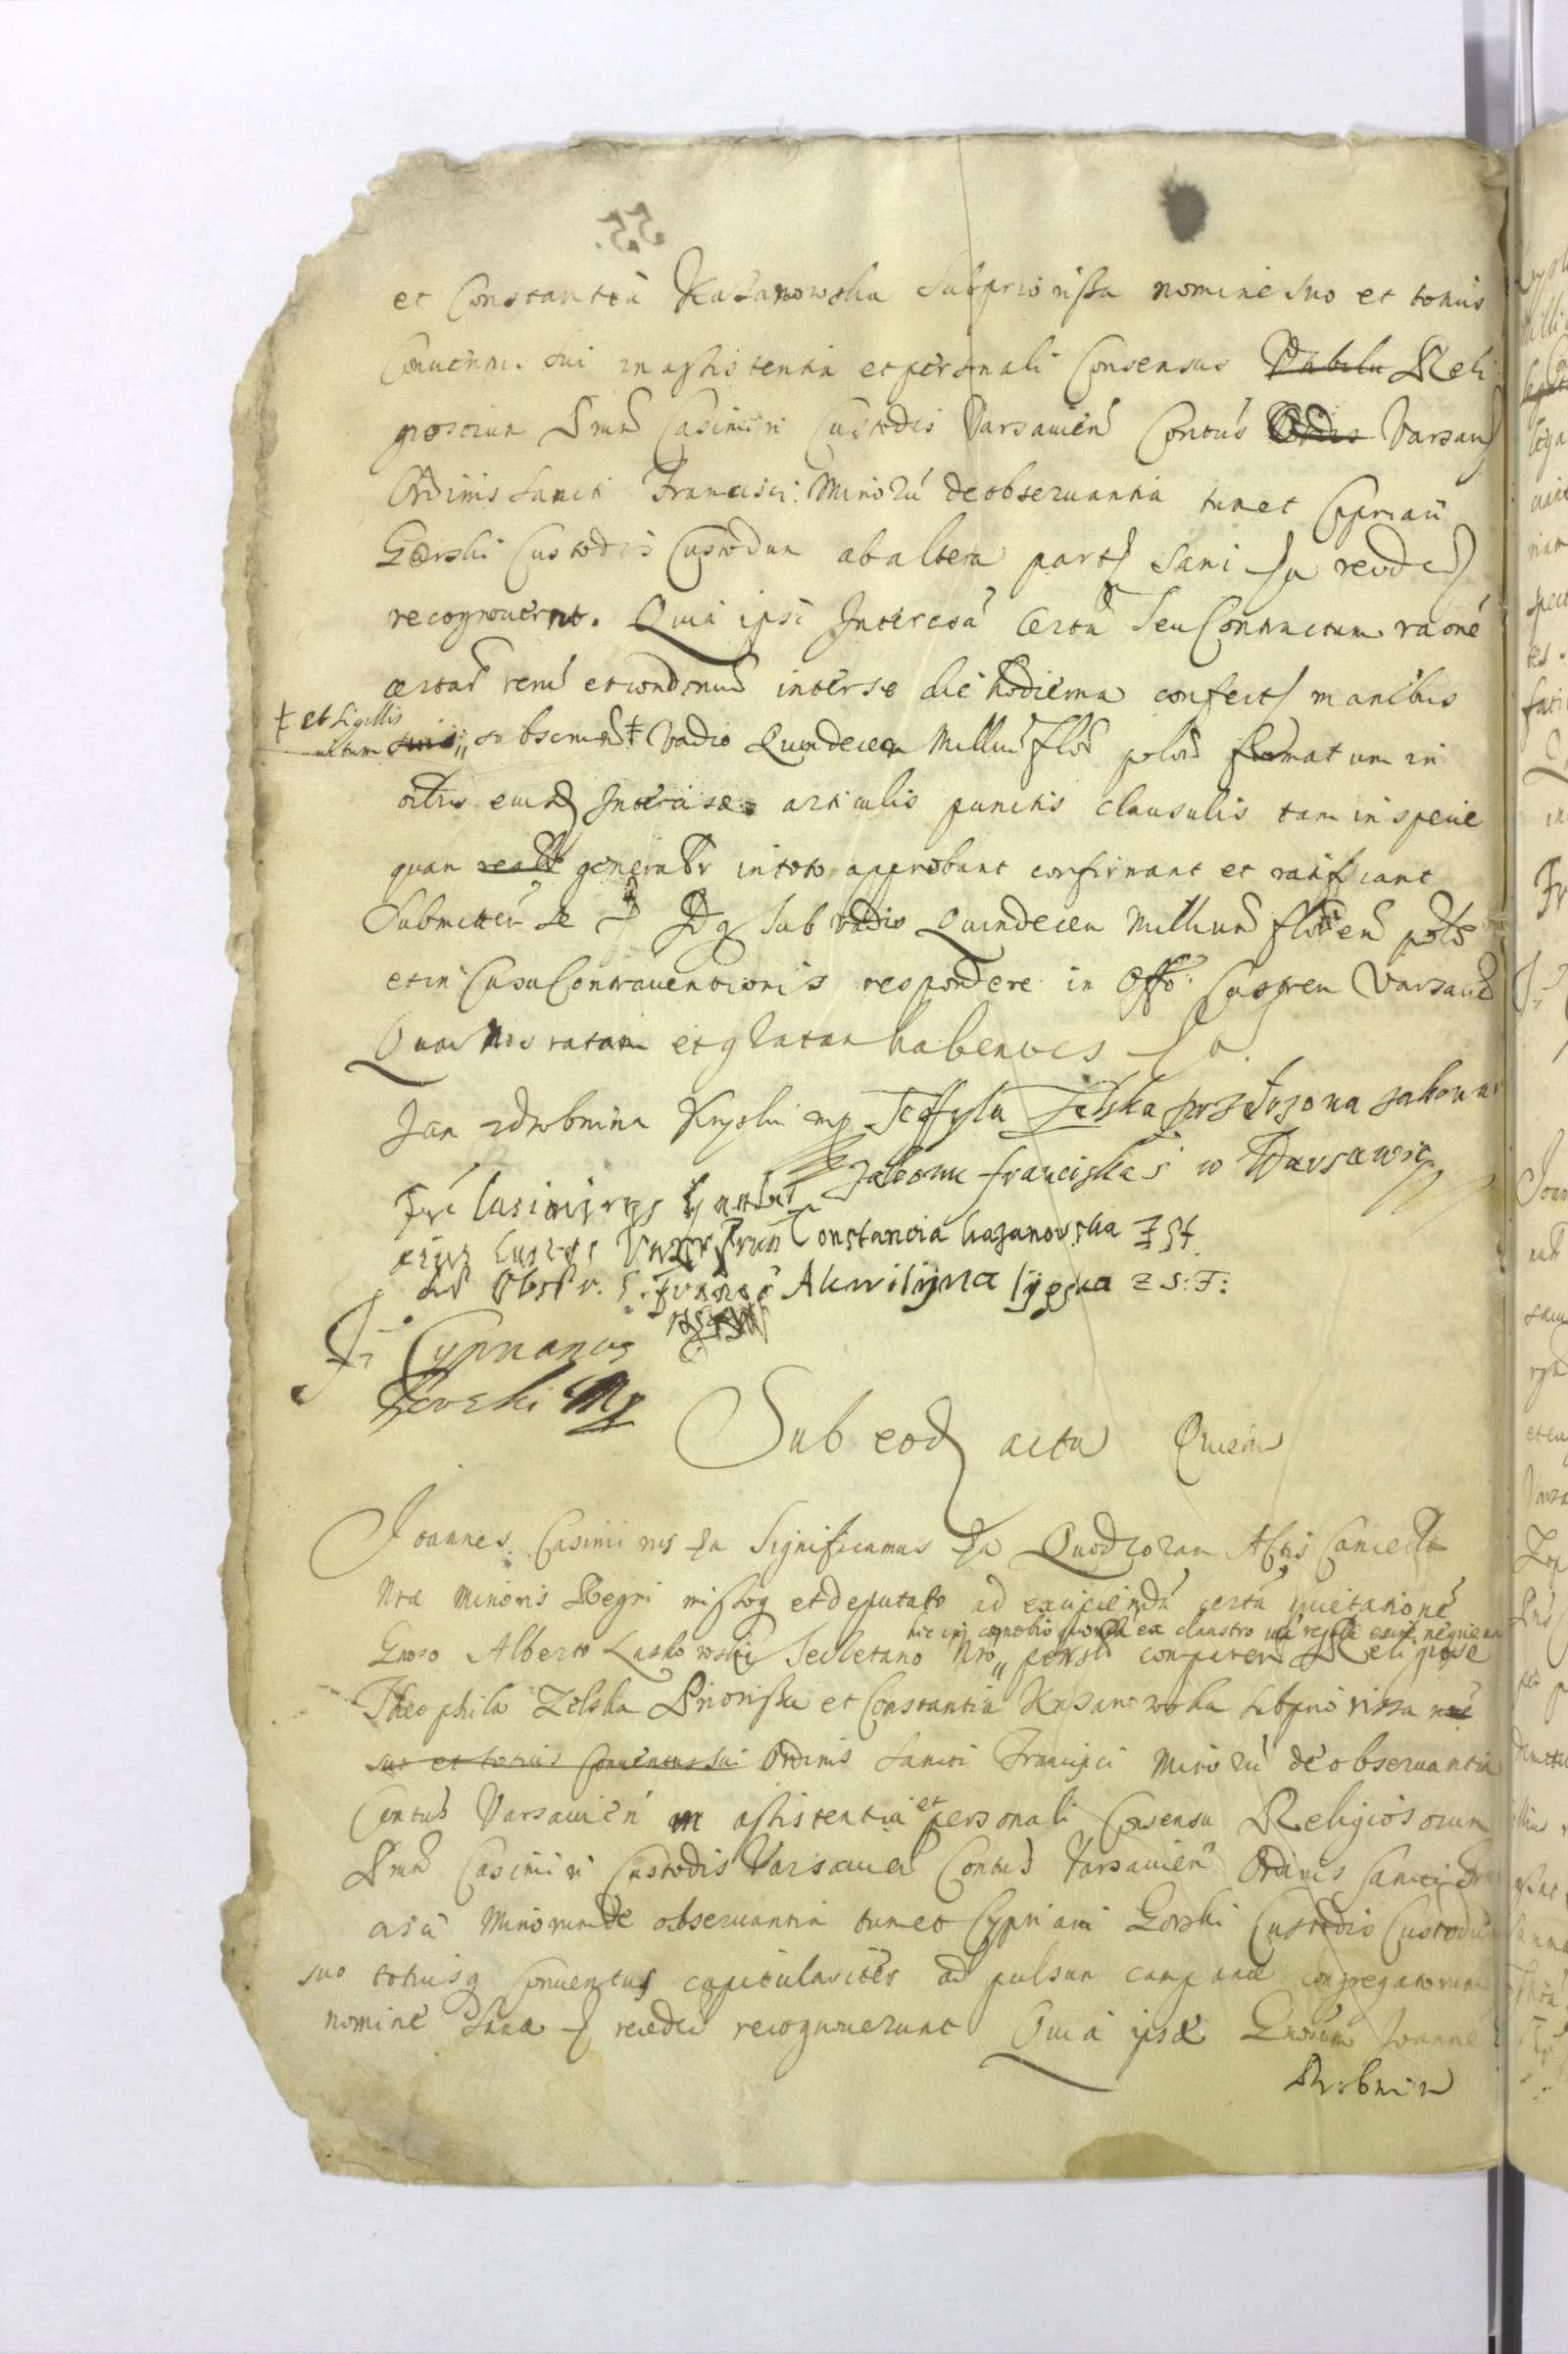 et Constantia Kazanowska Subpriorissa nomine suo et totius
Conuent. sui in assistentia et personali Consensus Reli
giosorum Casimiri Custodis Varsauien Contus Varsau
Ordinis Sancti Francisci Minorũ de obseruantia tum et Cypriani
Gorski Custodis Custodum ab altera parte sani recedẽ
recognouerunt. Quia ipsi Intercisã certã seu Contractum raõne
certar rerũ inter se die hodierna confect manibus
‡ et sigillis
subscript ‡ Vadio Quindecem Milliũ flõr polõ firmatum in
oĩbus eiusd Intercisae articulis punctis clausulis tam in specie
quam generalr in toto approbant confirmant et ratificant
Submitteñ se sub vadio Quindecem Millium floren polõ
et in Casu Contrauentionis respondere in Offo Castren Varsauiẽ
Quam Nos ratam et gratam habentes
Jan Drobnina Kryski mp Teoffyla Zelska przełozona zakonu
zakonu franciska S w Warsawie
Constancia kazanowska Z S F
de Obseru. S. Franc Akwilyna lypska Z S: F:
Fr Cyprianus
Gorski Mp
Sub eod actu Quietat
Joannes Casimirus Significamus Quod coram Actis Cancell
Nrae Minoris Regni missoq et deputato ad excipiendã certã quietationẽ
hic in cænobio ex claustro
Gnoso Alberto Laskowski Secretario Nro psonlr comparen Religiose
Theophila Zelska Priorissa et Constantia Kazanowska subpriorissa
suo et totius Conuentus sui Ordinis Sancti Francisci Minorũ de obseruantia
Contus Varsauien in assistentia et personali Consensu Religiosorum
Casimiri Custodis Varsauien Contus Varsauien Ordinis Sancti Fran
cisci Minorum de obseruantia tum et Cypriani Gorski Custodis Custodum
suo totiusq Conuentus capitulariter ad pulsum campanae congregatorum
nomine sanae recedẽ recognouerunt Quia ipsae Gnosum Joannẽ
Drobnin
55.